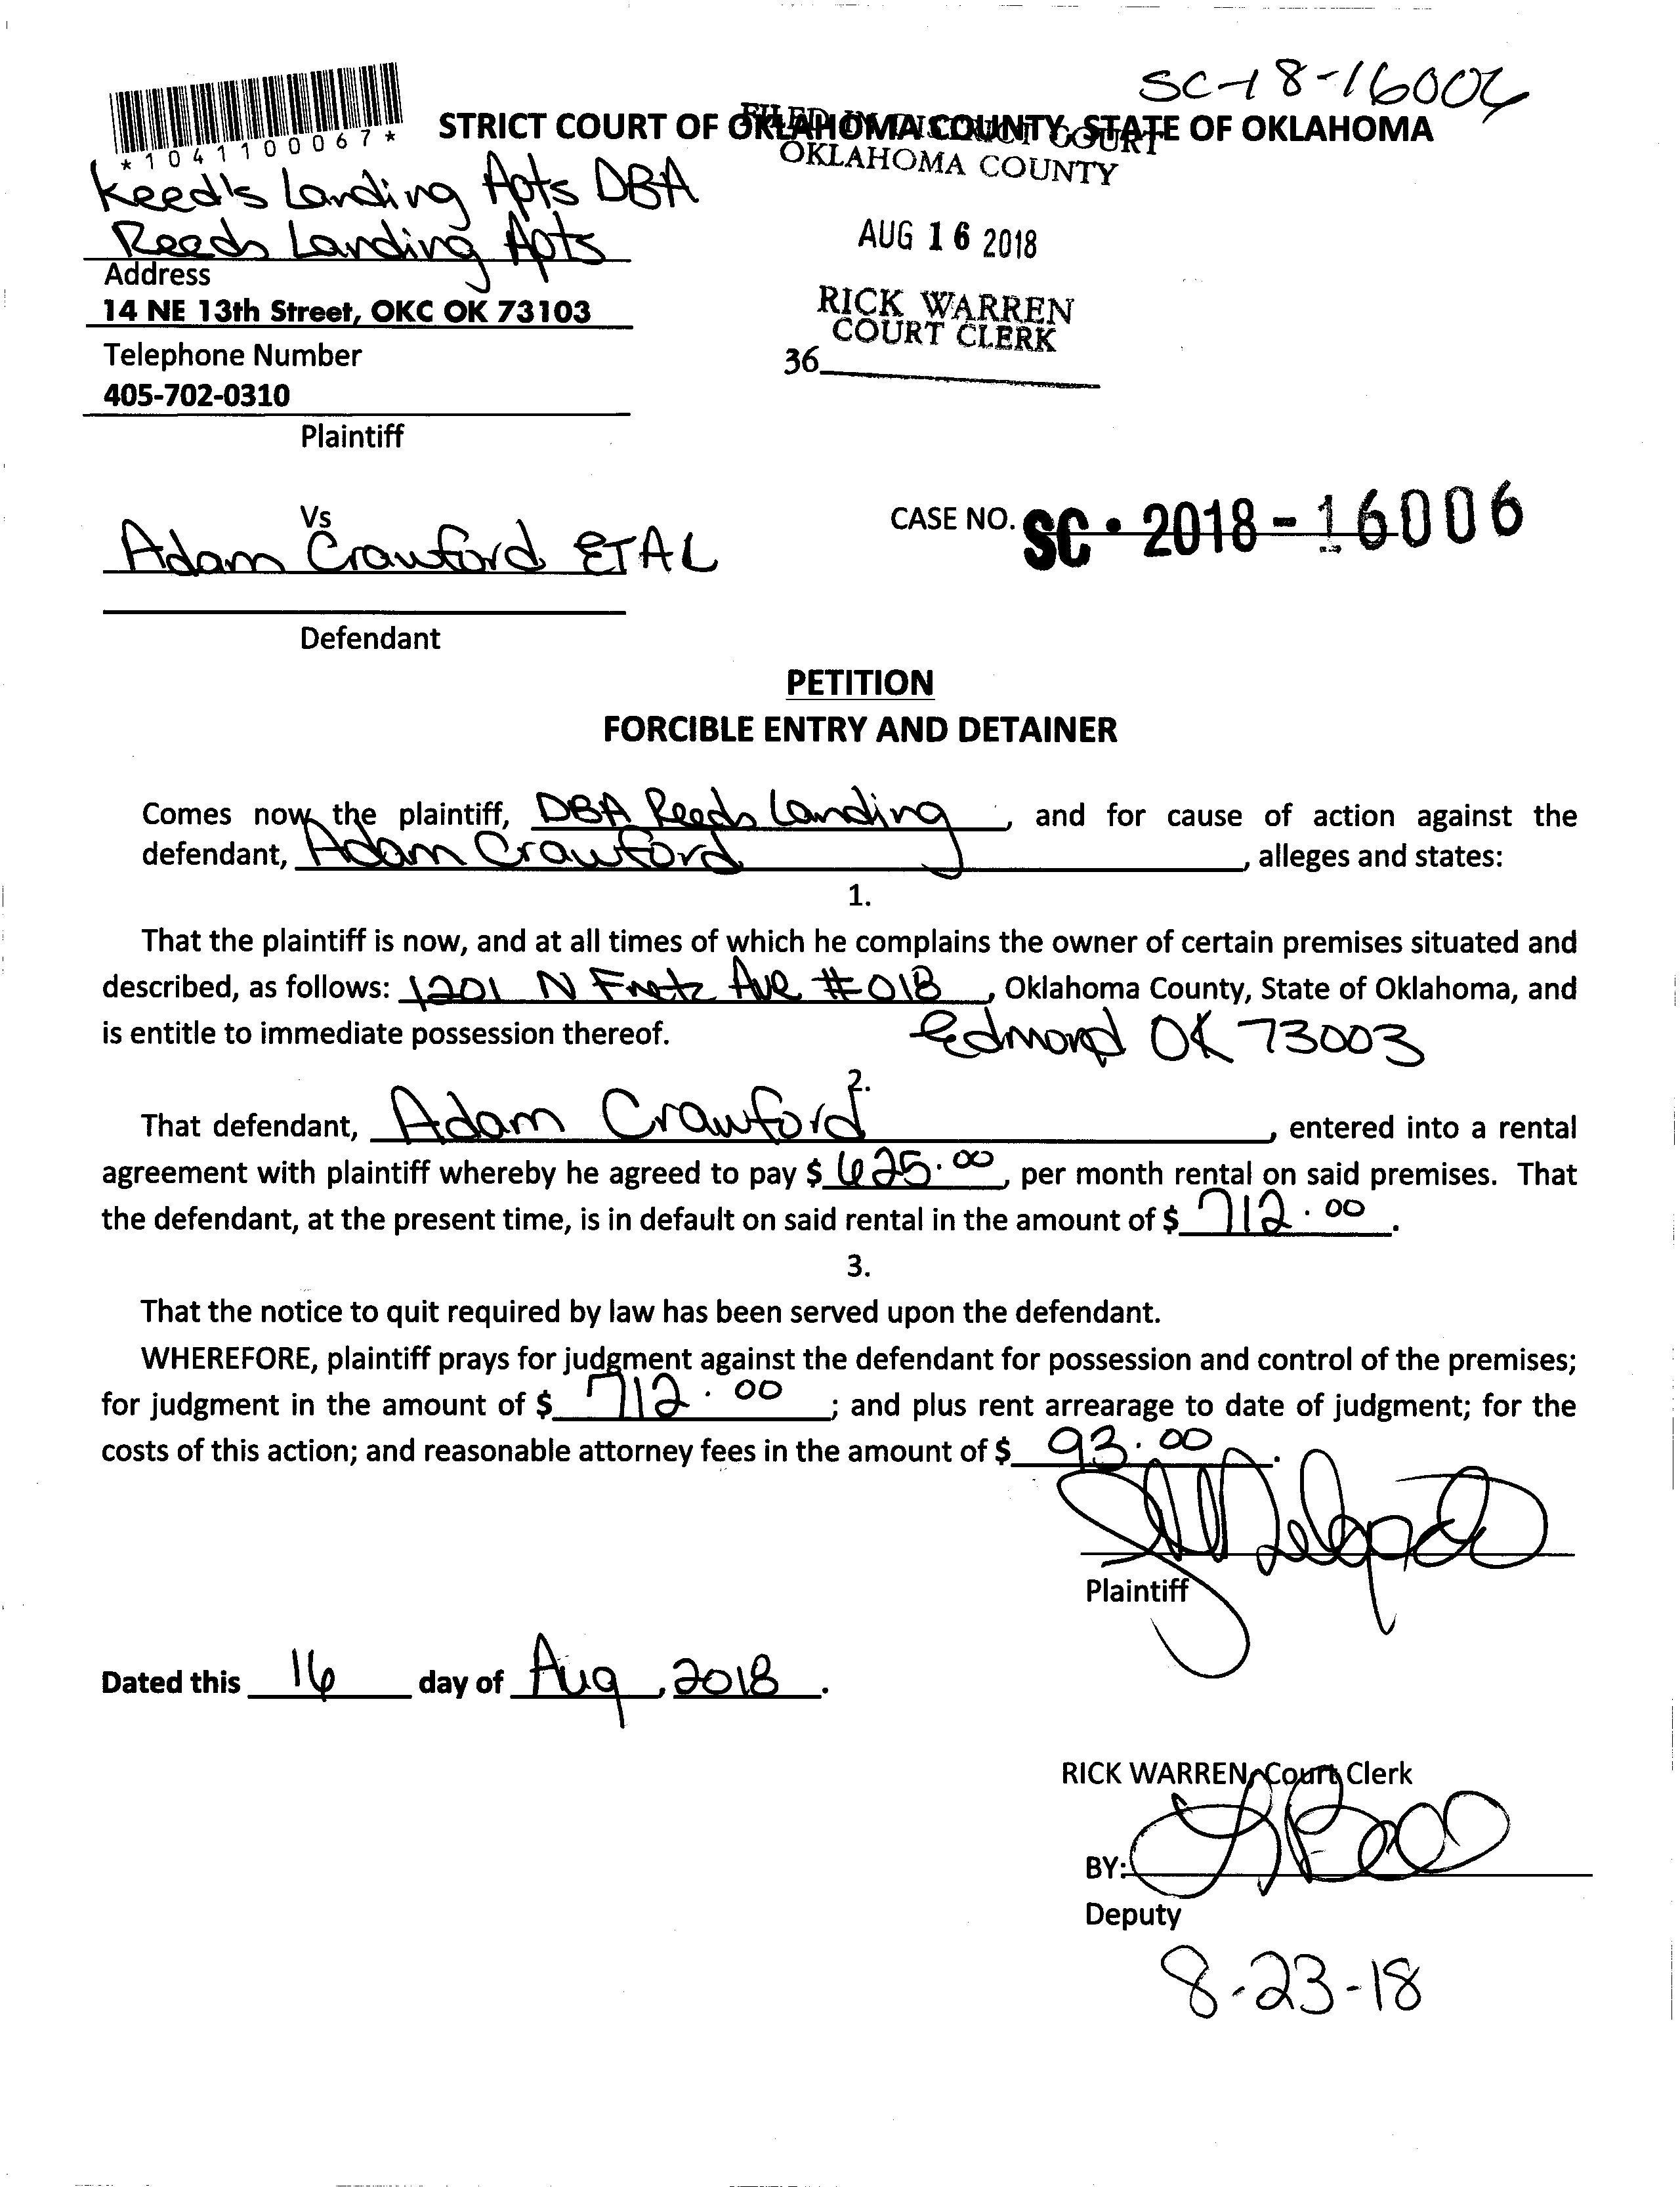 SC-18-16006
*1041100067*
STRICT COURT OF OKLAHOMA COUNTY, STATE OF OKLAHOMA
FILED IN DISTRICT COURT
OKLAHOMA COUNTY
Reed's Landing Apts DBA
Reeds Landing Apts
AUG 16 2018
Address
14 NE 13th Street, OKC OK 73103
RICK WARREN
COURT CLERK
Telephone Number
36
405-702-0310
Plaintiff
Vs
CASE NO. SC - 2018 - 16006
Adam Crawford ETAL
Defendant
PETITION
FORCIBLE ENTRY AND DETAINER
Comes now the plaintiff, DBA Reeds Landing, and for cause of action against the
defendant, Adam Crawford, alleges and states:
1.
That the plaintiff is now, and at all times of which he complains the owner of certain premises situated and
described, as follows: 1201 N Fretz Ave #018, Oklahoma County, State of Oklahoma, and
is entitle to immediate possession thereof. Edmond OK 73003
2.
That defendant, Adam Crawford, entered into a rental
agreement with plaintiff whereby he agreed to pay $ 625.00, per month rental on said premises. That
the defendant, at the present time, is in default on said rental in the amount of $ 712.00.
3.
That the notice to quit required by law has been served upon the defendant.
WHEREFORE, plaintiff prays for judgment against the defendant for possession and control of the premises;
for judgment in the amount of $ 712.00; and plus rent arrearage to date of judgment; for the
costs of this action; and reasonable attorney fees in the amount of $ 93.00.
Plaintiff
Dated this 16 day of Aug, 2018.
RICK WARREN, Court Clerk
BY:
Deputy
8-23-18